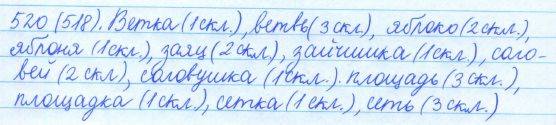 520 (518). Ветка (1 скл.), ветвь (3 скл.), яблоко (2 скл.),
яблоня (1 скл.), заяц (2 скл), зайчишка (1 скл.), соло-
вей (2 скл), соловушка (1 скл.). площадь (3 скл.),
площадка (1 скл.), сетка (1 скл.), сеть (3 скл.)